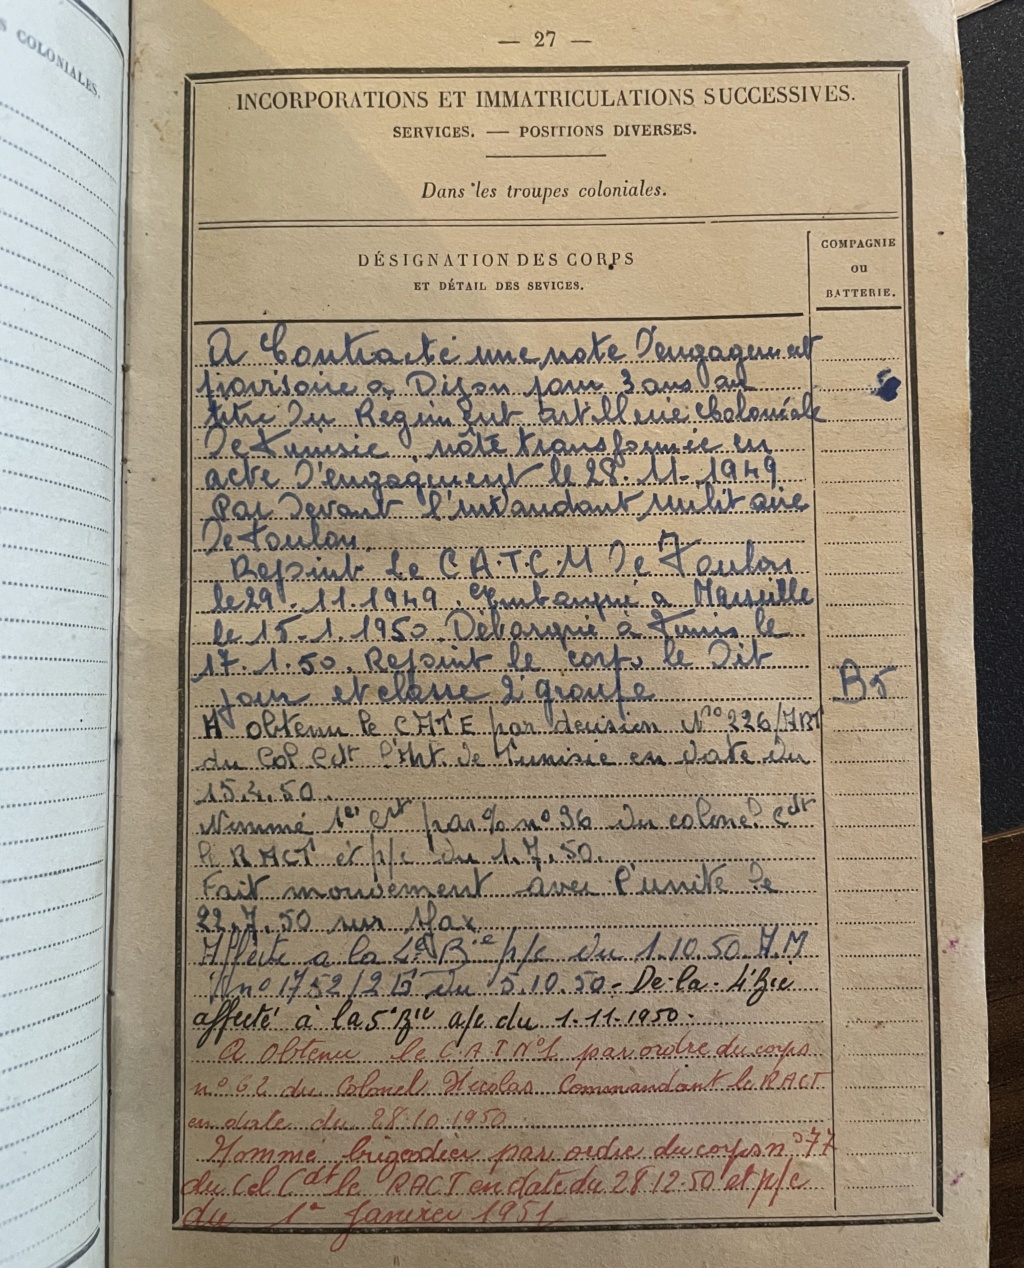 S COLONIALES.
— 27 —
INCORPORATIONS ET IMMATRICULATIONS SUCCESSIVES.
SERVICES. — POSITIONS DIVERSES.
Dans les troupes coloniales.
DÉSIGNATION DES CORPS
ET DÉTAIL DES SEVICES.
COMPAGNIE
OU
BATTERIE.
A Contracté une note d'engagement
provisoire a Dijon pour 3 ans au
titre du Regiment artillerie Coloniale
de Tunisie, note transformée en
acte d'engagement le 28.11.1949
Par devant l'intandant militaire
de Toulon.
Rejoint le C.A.T.C.M de Toulon
le 29.11.1949. Embarqué a Marseille
le 15-1.1950. Debarqué à Tunis le
17.1.50. Rejoint le corps le dit
jour et classe 2e groupe
B5
A obtenu le CATE par decision No 226/ABT
du Col Cdt l'Art. de Tunisie en date du
15.4.50.
Nommé 1er Cst par % no 36 du colonel Cdt
le RACT et p/c du 1.7.50.
Fait mouvement avec l'unité le
22.7.50 sur Sfax
Affecté a la 4e Bie p/c du 1.10.50.
no 1752/2 du 5.10.50 - De la 4e Bie
affecté à la 5e Bie a/c du 1.11.1950.
A obtenu le C.A.T No1 par ordre du corps
no 62 du Colonel Commandant le RACT
en date du 28.10.1950.
Nommé brigadier par ordre du corps no 77
du Cel Cdt le RACT en date du 28.12.50 et p/c
du 1er Janvier 1951